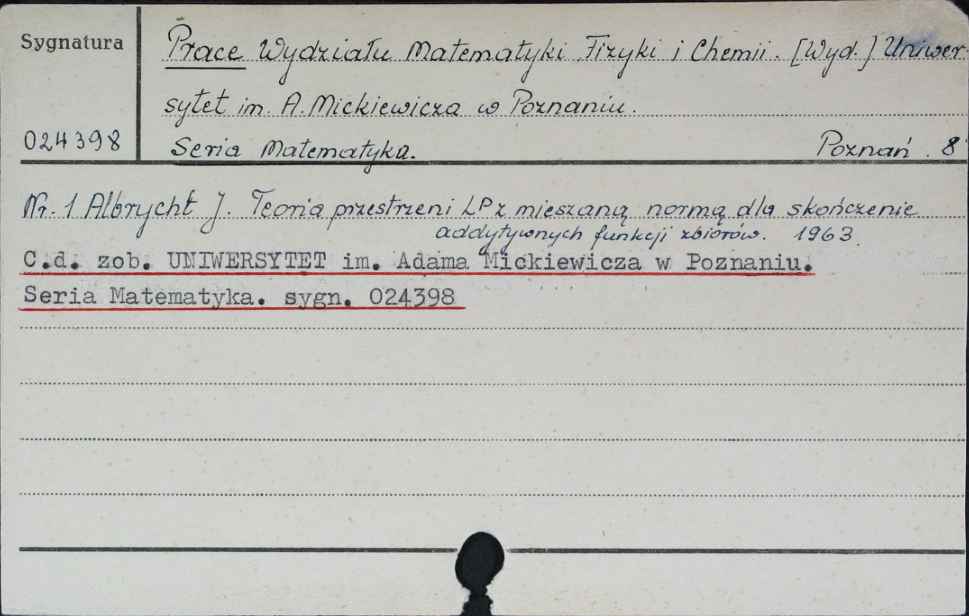 Sygnatura
Prace Wydziału Matematyki Fizyki i Chemii. [Wyd.] Uniwer-
sytet im. A. Mickiewicza w Poznaniu.
024398
Seria Matematyka. Poznań. 8°
Nr. 1 Albrycht J. Teoria przestrzeni LP z mieszaną normą dla skończenie
addytywnych funkcji zbiorów. 1963.
C.d. zob. UNIWERSYTET im. Adama Mickiewicza w Poznaniu.
Seria Matematyka. sygn. 024398